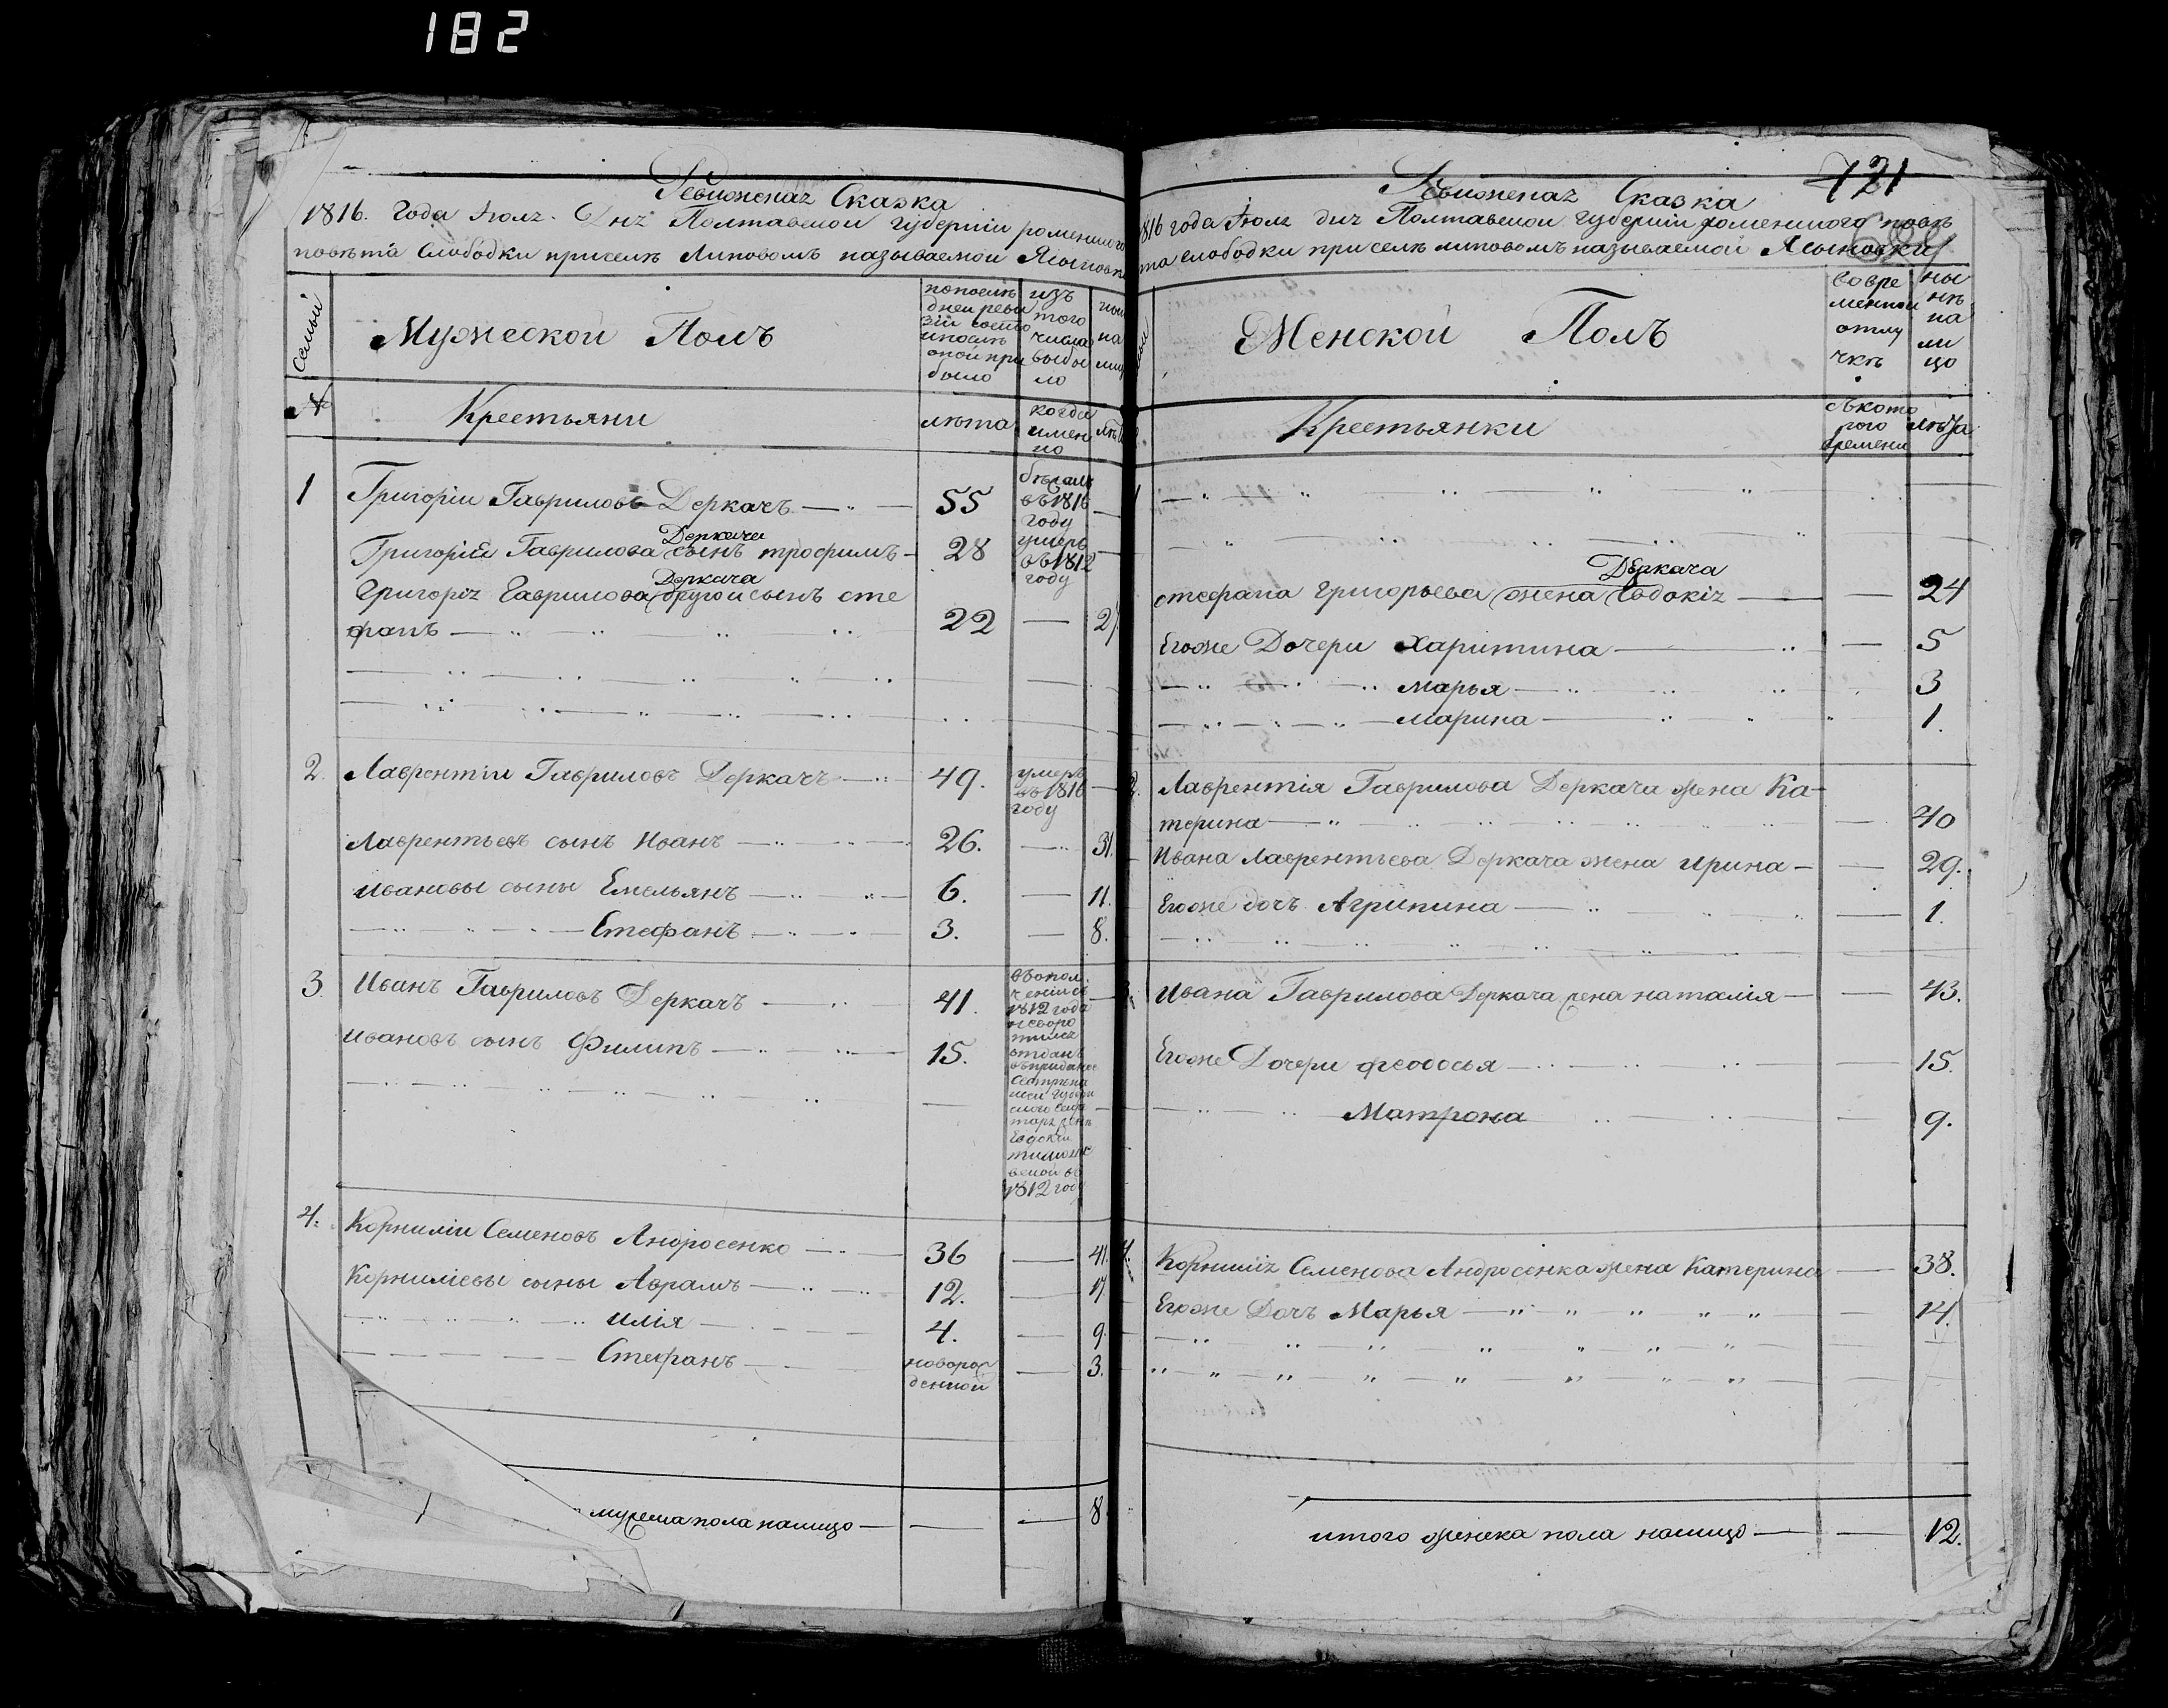 182
Ревижская Сказка
1816. года Июля. Дня Полтавской губерніи роменского
повѣта Слободки приселѣ Липовомъ называемой
семьи
Мужеской Полъ
попослѣ
дней реви
зіи состо
ипослѣ
оной при
было
изъ
того
числа
выбы
ло
№
Крестьяни
лѣта
когда
имен
но
1
Григоріи Гавриловъ Деркачъ
55
бѣгалъ
въ 1816
году
Деркача
Григорія Гаврилова сынъ трофимъ
28
умеръ
въ 1812
году
Деркача
Григорія Гаврилова другой сынъ сте
фанъ
22
2. Лаврентіи Гавриловъ Деркачъ
49.
умеръ
въ 1816
году
Лаврентьевъ сынъ Иванъ
26.
31.
Ивановы сыны Емельянъ
6.
11.
Стефанъ
3.
8.
3. Иванъ Гавриловъ Деркачъ
41.
въ опол
ченіи съ
1812 года
неворо
тился
Ивановъ сынъ Филипъ
15.
отданъ
въ приданое
1812 году
4. Корниліи Семеновъ Андросенко
36
41.
Корниліевы сыны Аврамъ
12.
17.
илія
4.
9.
Стефанъ
новорож
денной
3.
мужеска пола налицо
8.
721
Ревижская Сказка
1816 года Июля дня Полтавской губерніи роменского повѣ
та слободки приселѣ липовомъ называемой
Женской Полъ
вовре
менной
отлу
чкѣ
ны
нѣ
на
ли
цо
Крестьянки
съкото
рого
времени
лѣта
Деркача
стефана григорьева жена Евдокія
24
Егоже Дочери Харитина
5
марья
3
марина
1.
2. Лаврентія Гаврилова Деркача жена Ка-
терина
40
Ивана Лаврентьева Деркача жена Ирина
29.
Егоже дочь Агрипина
1.
Ивана Гаврилова Деркача жена наталія
43.
Егоже Дочери феодосья
15.
Матрона
9.
4. Корнилія Семенова Андросенка жена Катерина
38.
Егоже Дочь Марья
14.
итого женска пола налицо
12.